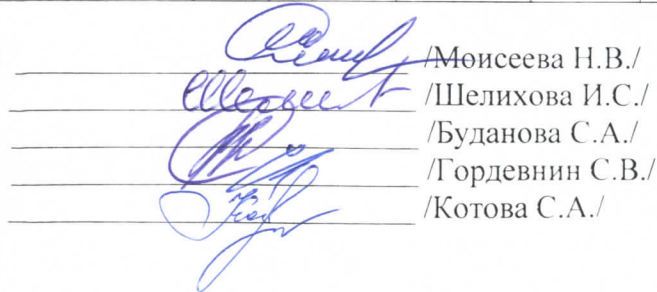 /Моисеева Н.В./
/Шелихова И.С./
/Буданова С.А./
/Гордевнин С.В./
/Котова С.А./